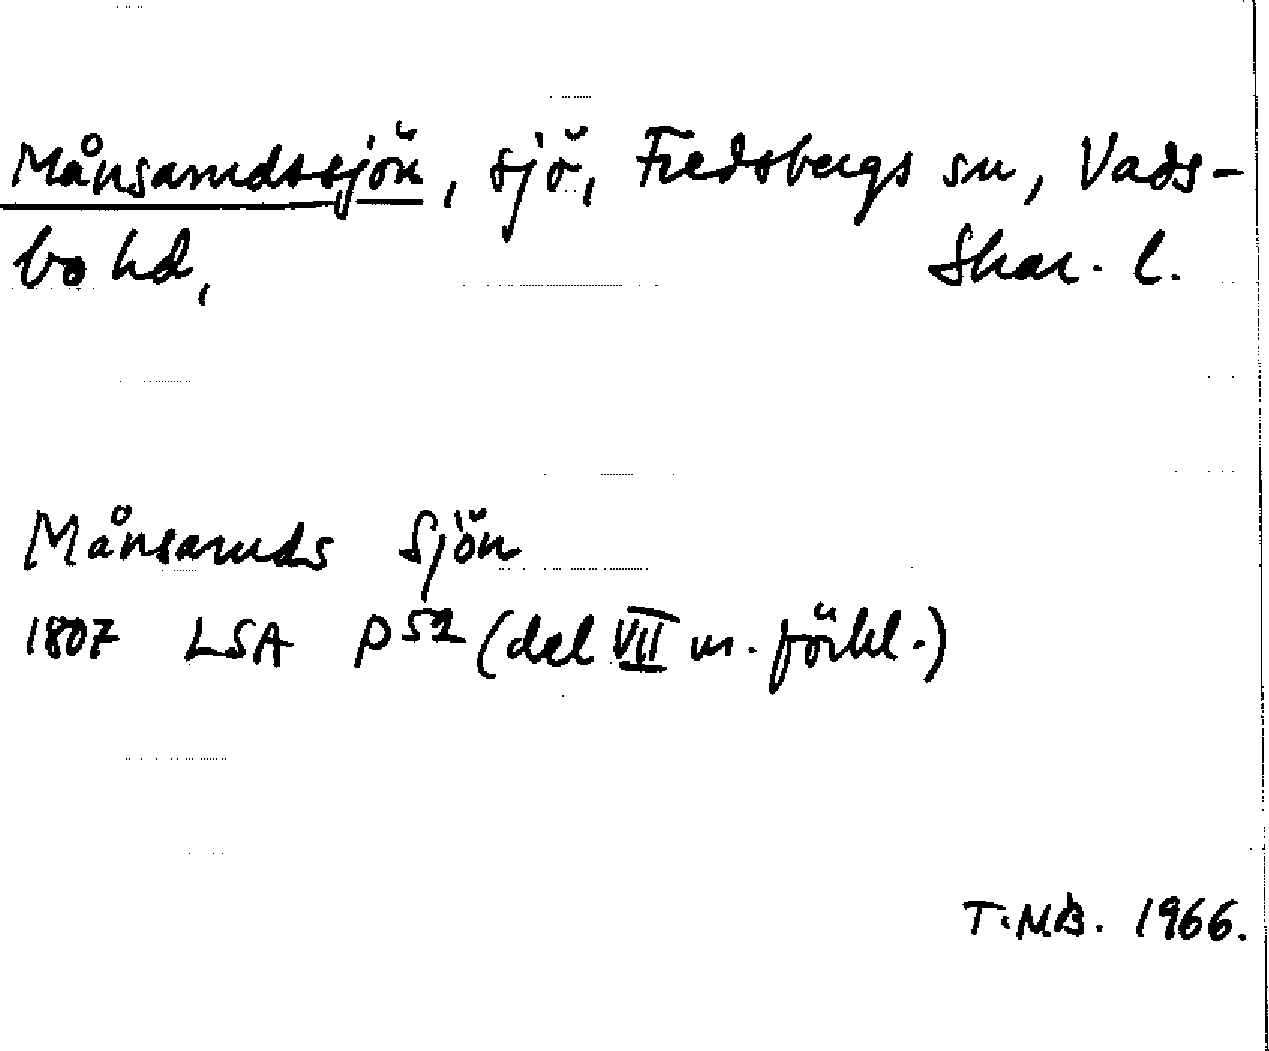 Månsarudssjön, sjö, Fredsbergs sn, Vads-
bo hd, Skar. l.
Månsaruds Sjön
1807 LSA P52 (del VII m. förkl.)
T.M.B. 1966.